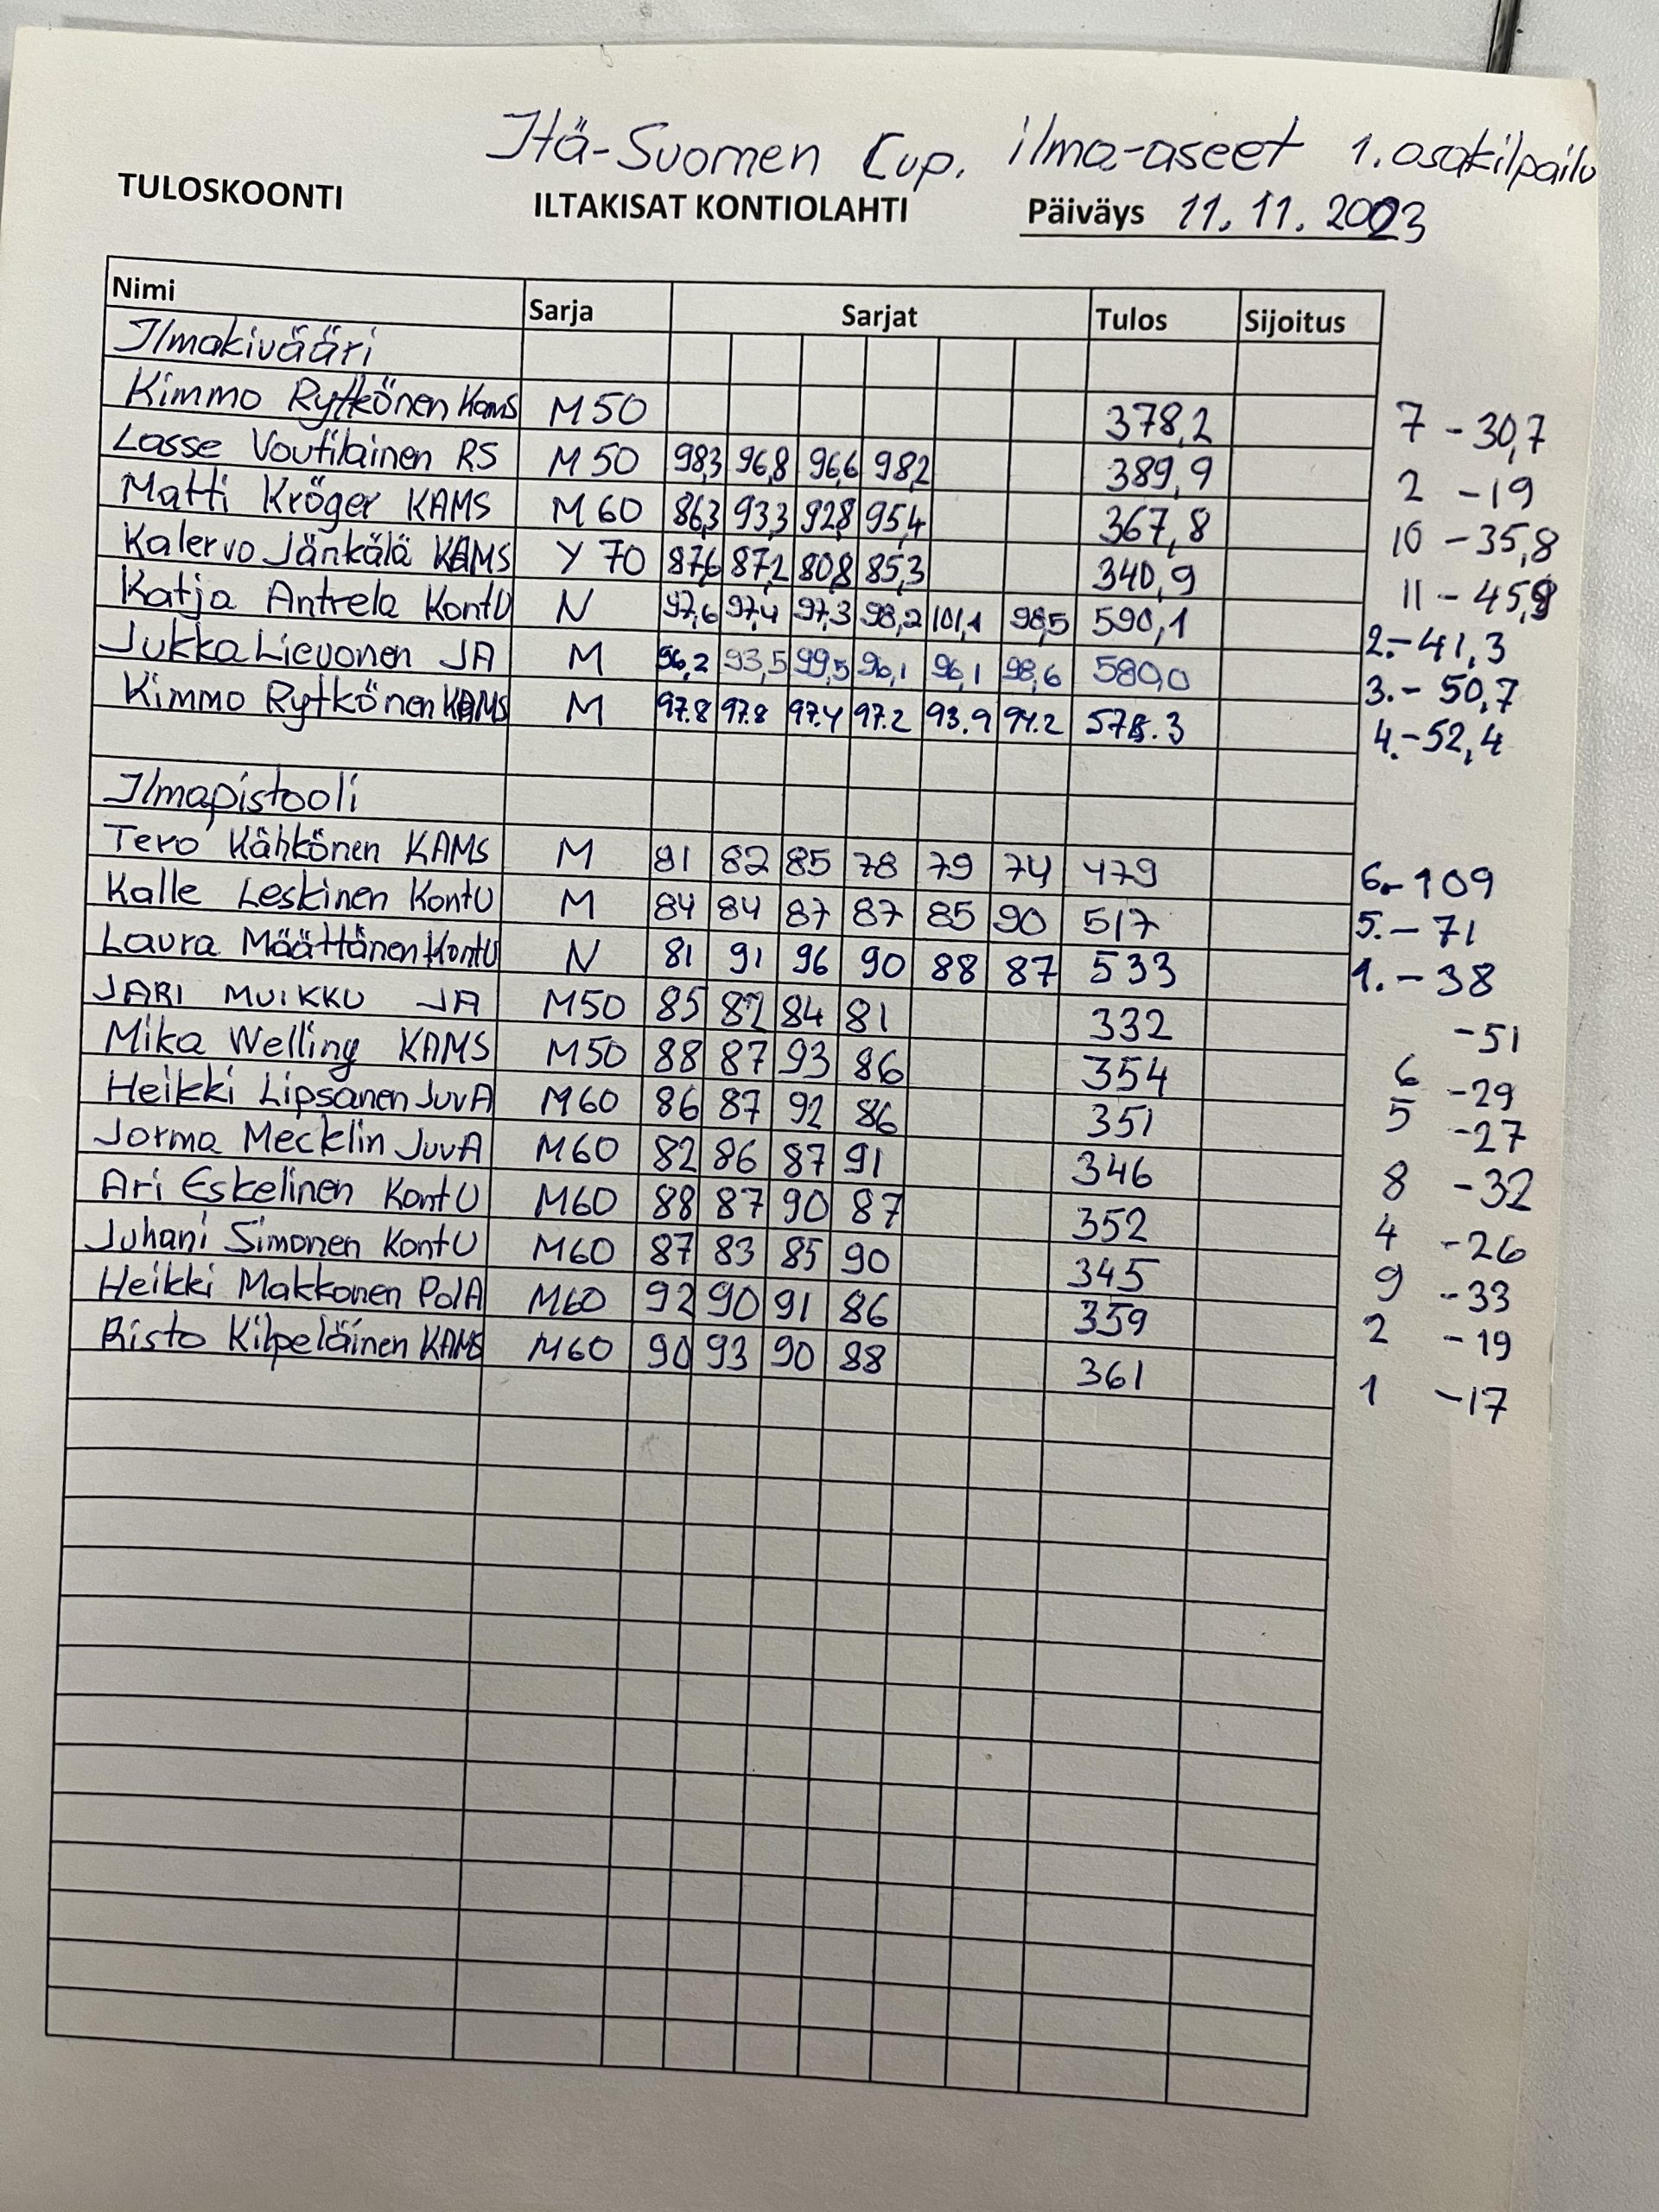 Itä-Suomen Cup. ilma-aseet 1. osakilpailu
TULOSKOONTI ILTAKISAT KONTIOLAHTI Päiväys 11.11.2023
Nimi Sarja Sarjat Tulos Sijoitus
Ilmakivääri
Kimmo Rytkönen Kams M50 378,2 7 -30,7
Lasse Voutilainen RS M50 98,3 96,8 96,6 98,2 389,9 2 -19
Matti Kröger KAMS M60 86,3 93,3 92,8 95,4 367,8 10 -35,8
Kalervo Jänkälä KAMS Y70 87,6 87,2 80,8 85,3 340,9 11 -45,9
Katja Antrela KontU N 97,6 97,4 97,3 98,2 101,1 98,5 590,1 2.-41,3
Jukka Lievonen JA M 96,2 93,5 99,5 96,1 96,1 98,6 580,0 3.- 50,7
Kimmo Rytkönen KAMS M 97.8 97.8 97.4 97.2 93.9 94.2 578.3 4.-52,4
Ilmapistooli
Tero Kähkönen KAMS M 81 82 85 78 79 74 479 6.-109
Kalle Leskinen KontU M 84 84 87 87 85 90 517 5.- 71
Laura Määttänen KontU N 81 91 96 90 88 87 533 1.- 38
JARI MUIKKU JA M50 85 82 84 81 332 -51
Mika Welling KAMS M50 88 87 93 86 354 6 -29
Heikki Lipsanen JuvA M60 86 87 92 86 351 5 -27
Jorma Mecklin JuvA M60 82 86 87 91 346 8 -32
Ari Eskelinen KontU M60 88 87 90 87 352 4 -26
Juhani Simonen KontU M60 87 83 85 90 345 9 -33
Heikki Makkonen PolA M60 92 90 91 86 359 2 -19
Risto Kilpeläinen KAMS M60 90 93 90 88 361 1 -17